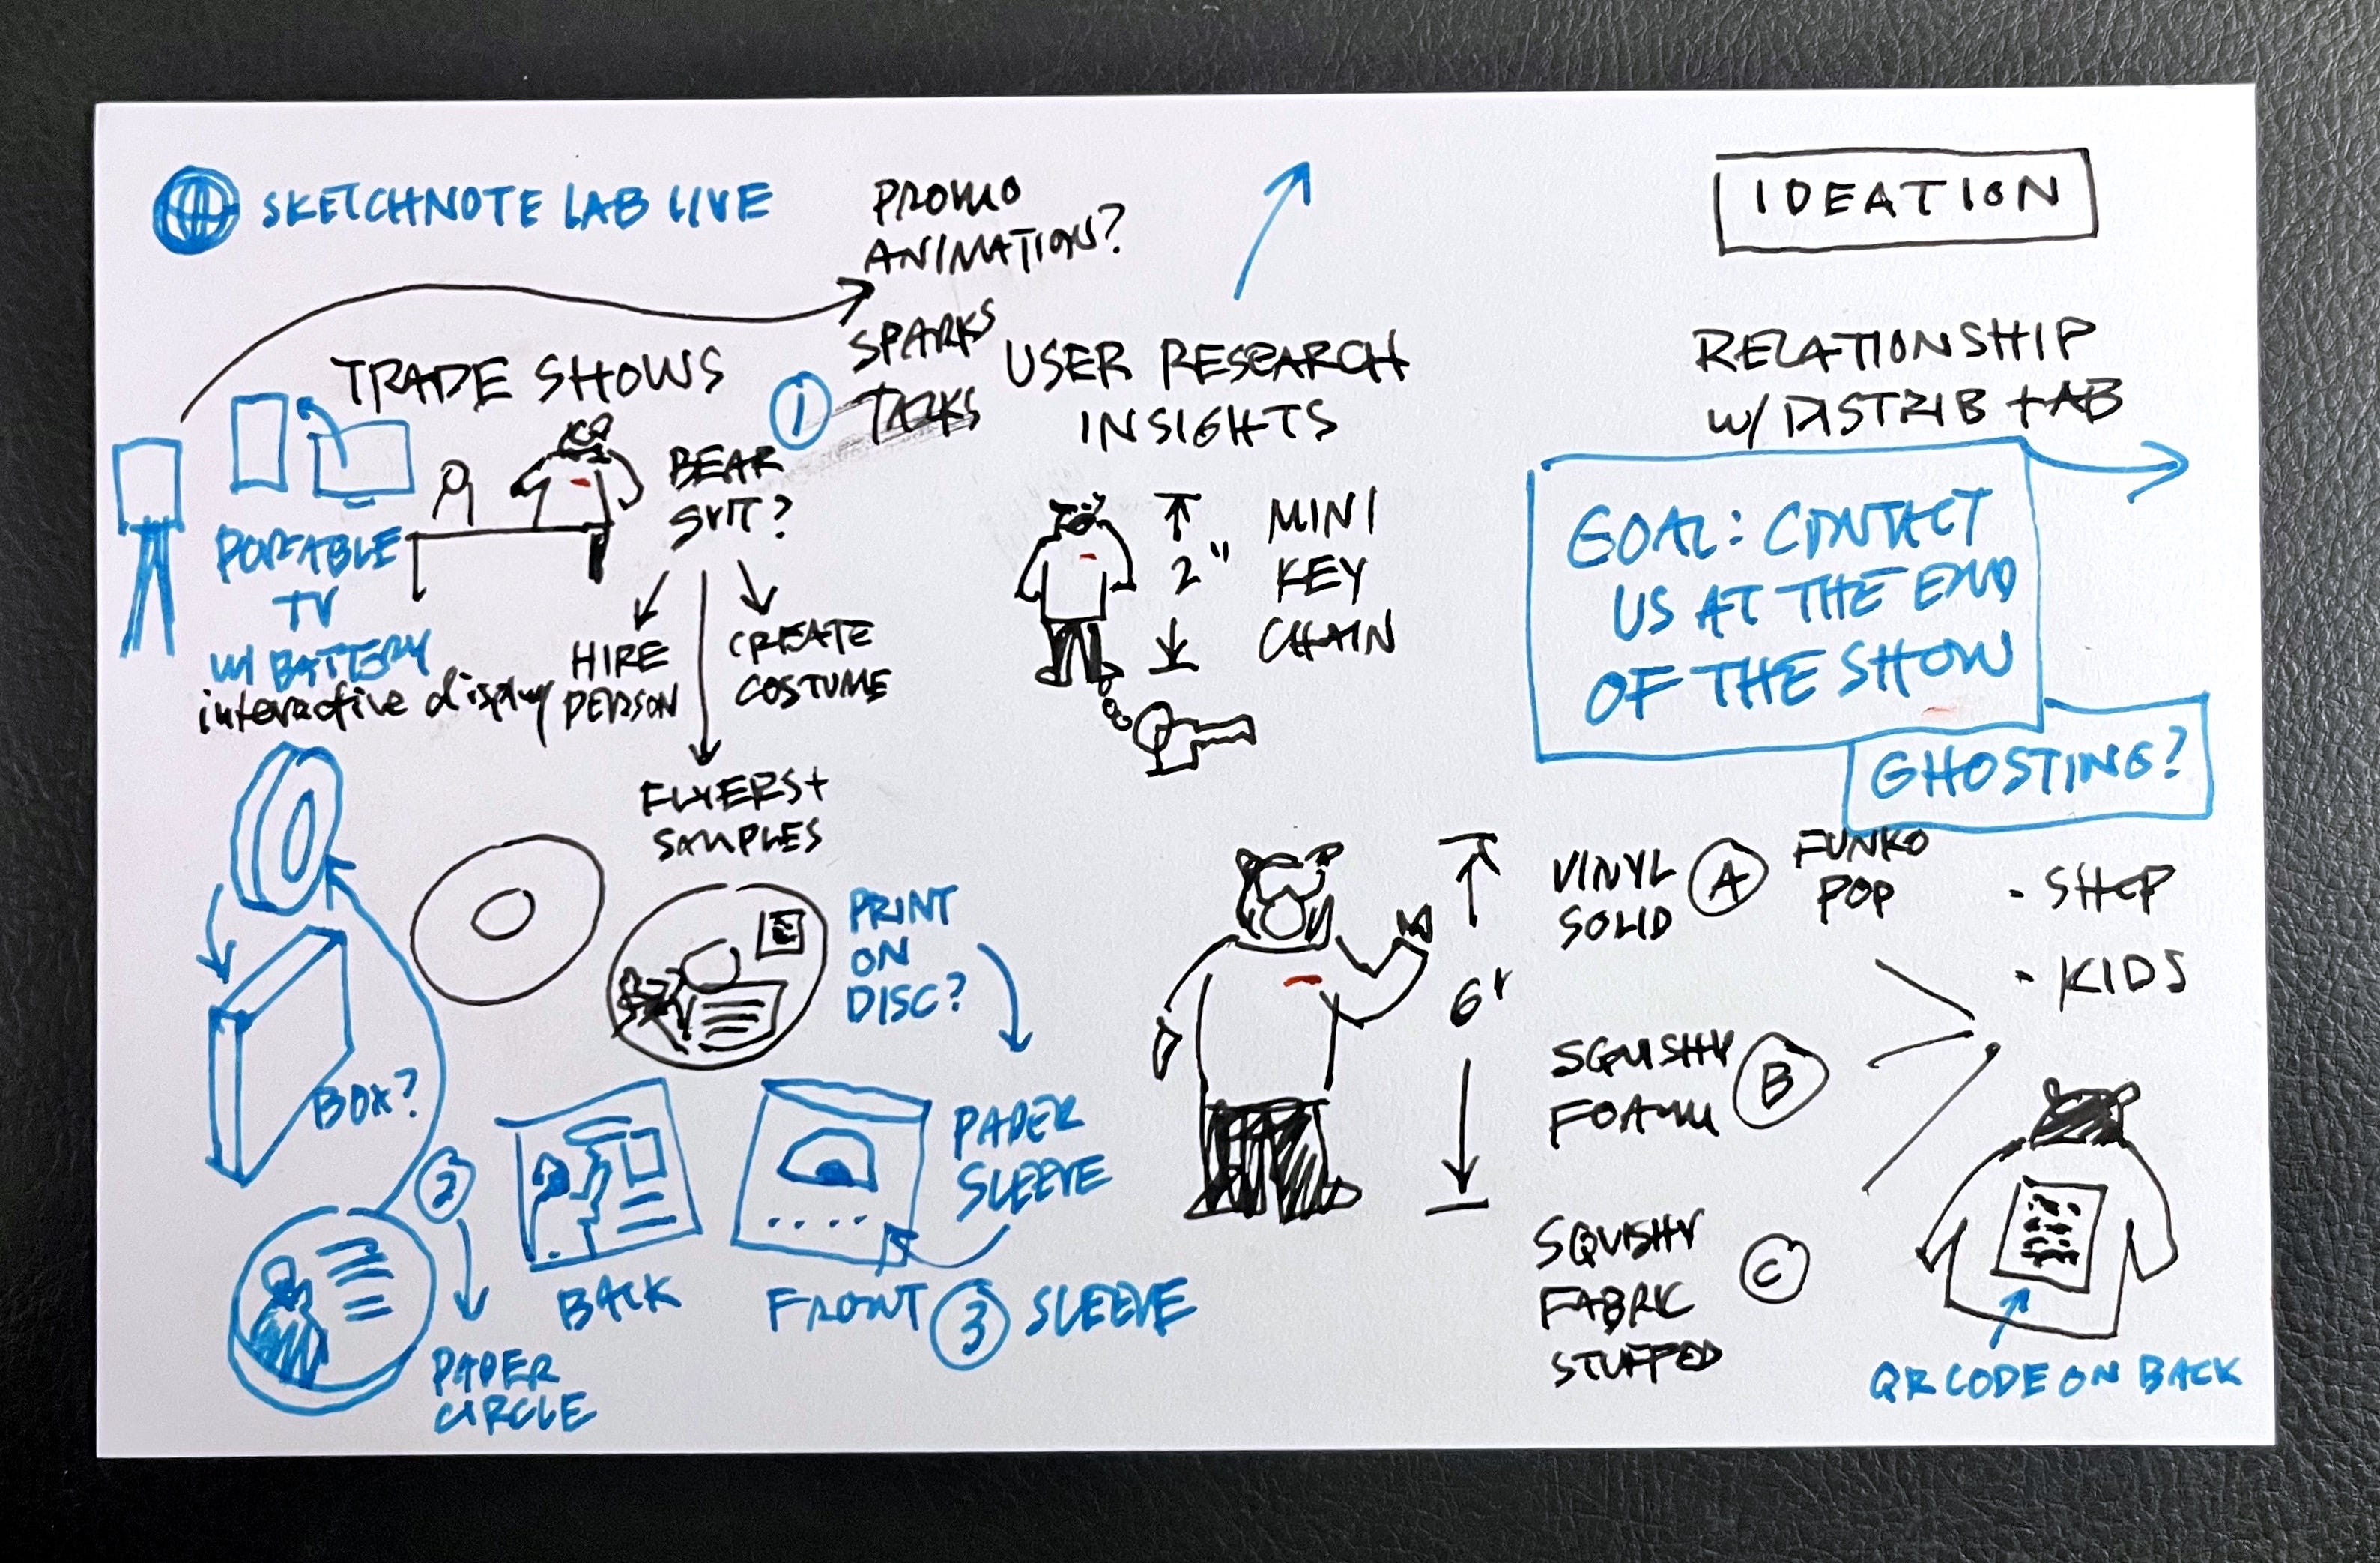 SKETCHNOTE LAB LIVE
PROMO
ANIMATION?
SPARKS
TALKS
IDEATION
TRADE SHOWS
1
USER RESEARCH
INSIGHTS
RELATIONSHIP
W/ DISTRIB + AB
BEAR
SUIT?
PORTABLE
TV
W/ BATTERY
interactive display
HIRE
PERSON
CREATE
COSTUME
FLYERS +
SAMPLES
2"
MINI
KEY
CHAIN
GOAL: CONTACT
US AT THE END
OF THE SHOW
GHOSTING?
PRINT
ON
DISC?
BOX?
2
PAPER
CIRCLE
BACK
FRONT
3 SLEEVE
PAPER
SLEEVE
6"
VINYL
SOLID
A
FUNKO
POP
· SHOP
· KIDS
SQUISHY
FOAM
B
SQUISHY
FABRIC
STUFFED
C
QR CODE ON BACK